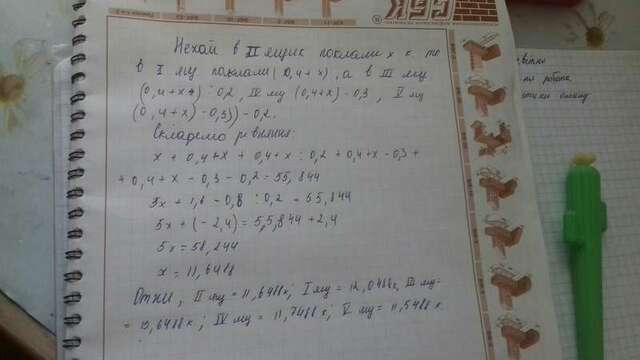 Нехай в II ящик поклали х к. то
в I му поклали (0,4+х), а в III му
(0,4+х) : 0,2, IV му (0,4+х) - 0,3, V му
(0,4+х) - 0,3)) - 0,2.
Складемо рівняння:
х + 0,4+х + 0,4+х : 0,2 + 0,4+х - 0,3 +
+ 0,4 + х - 0,3 - 0,2 = 55,844
5х + 1,6 - 0,8 : 0,2 = 55,844
5х + (-2,4) = 55,844 + 2,4
5х = 58,244
х = 11,6488
II му = 11,6488к; I му = 12,0488к, III му -
= 11,7488 к; V му = 11,5488 к.